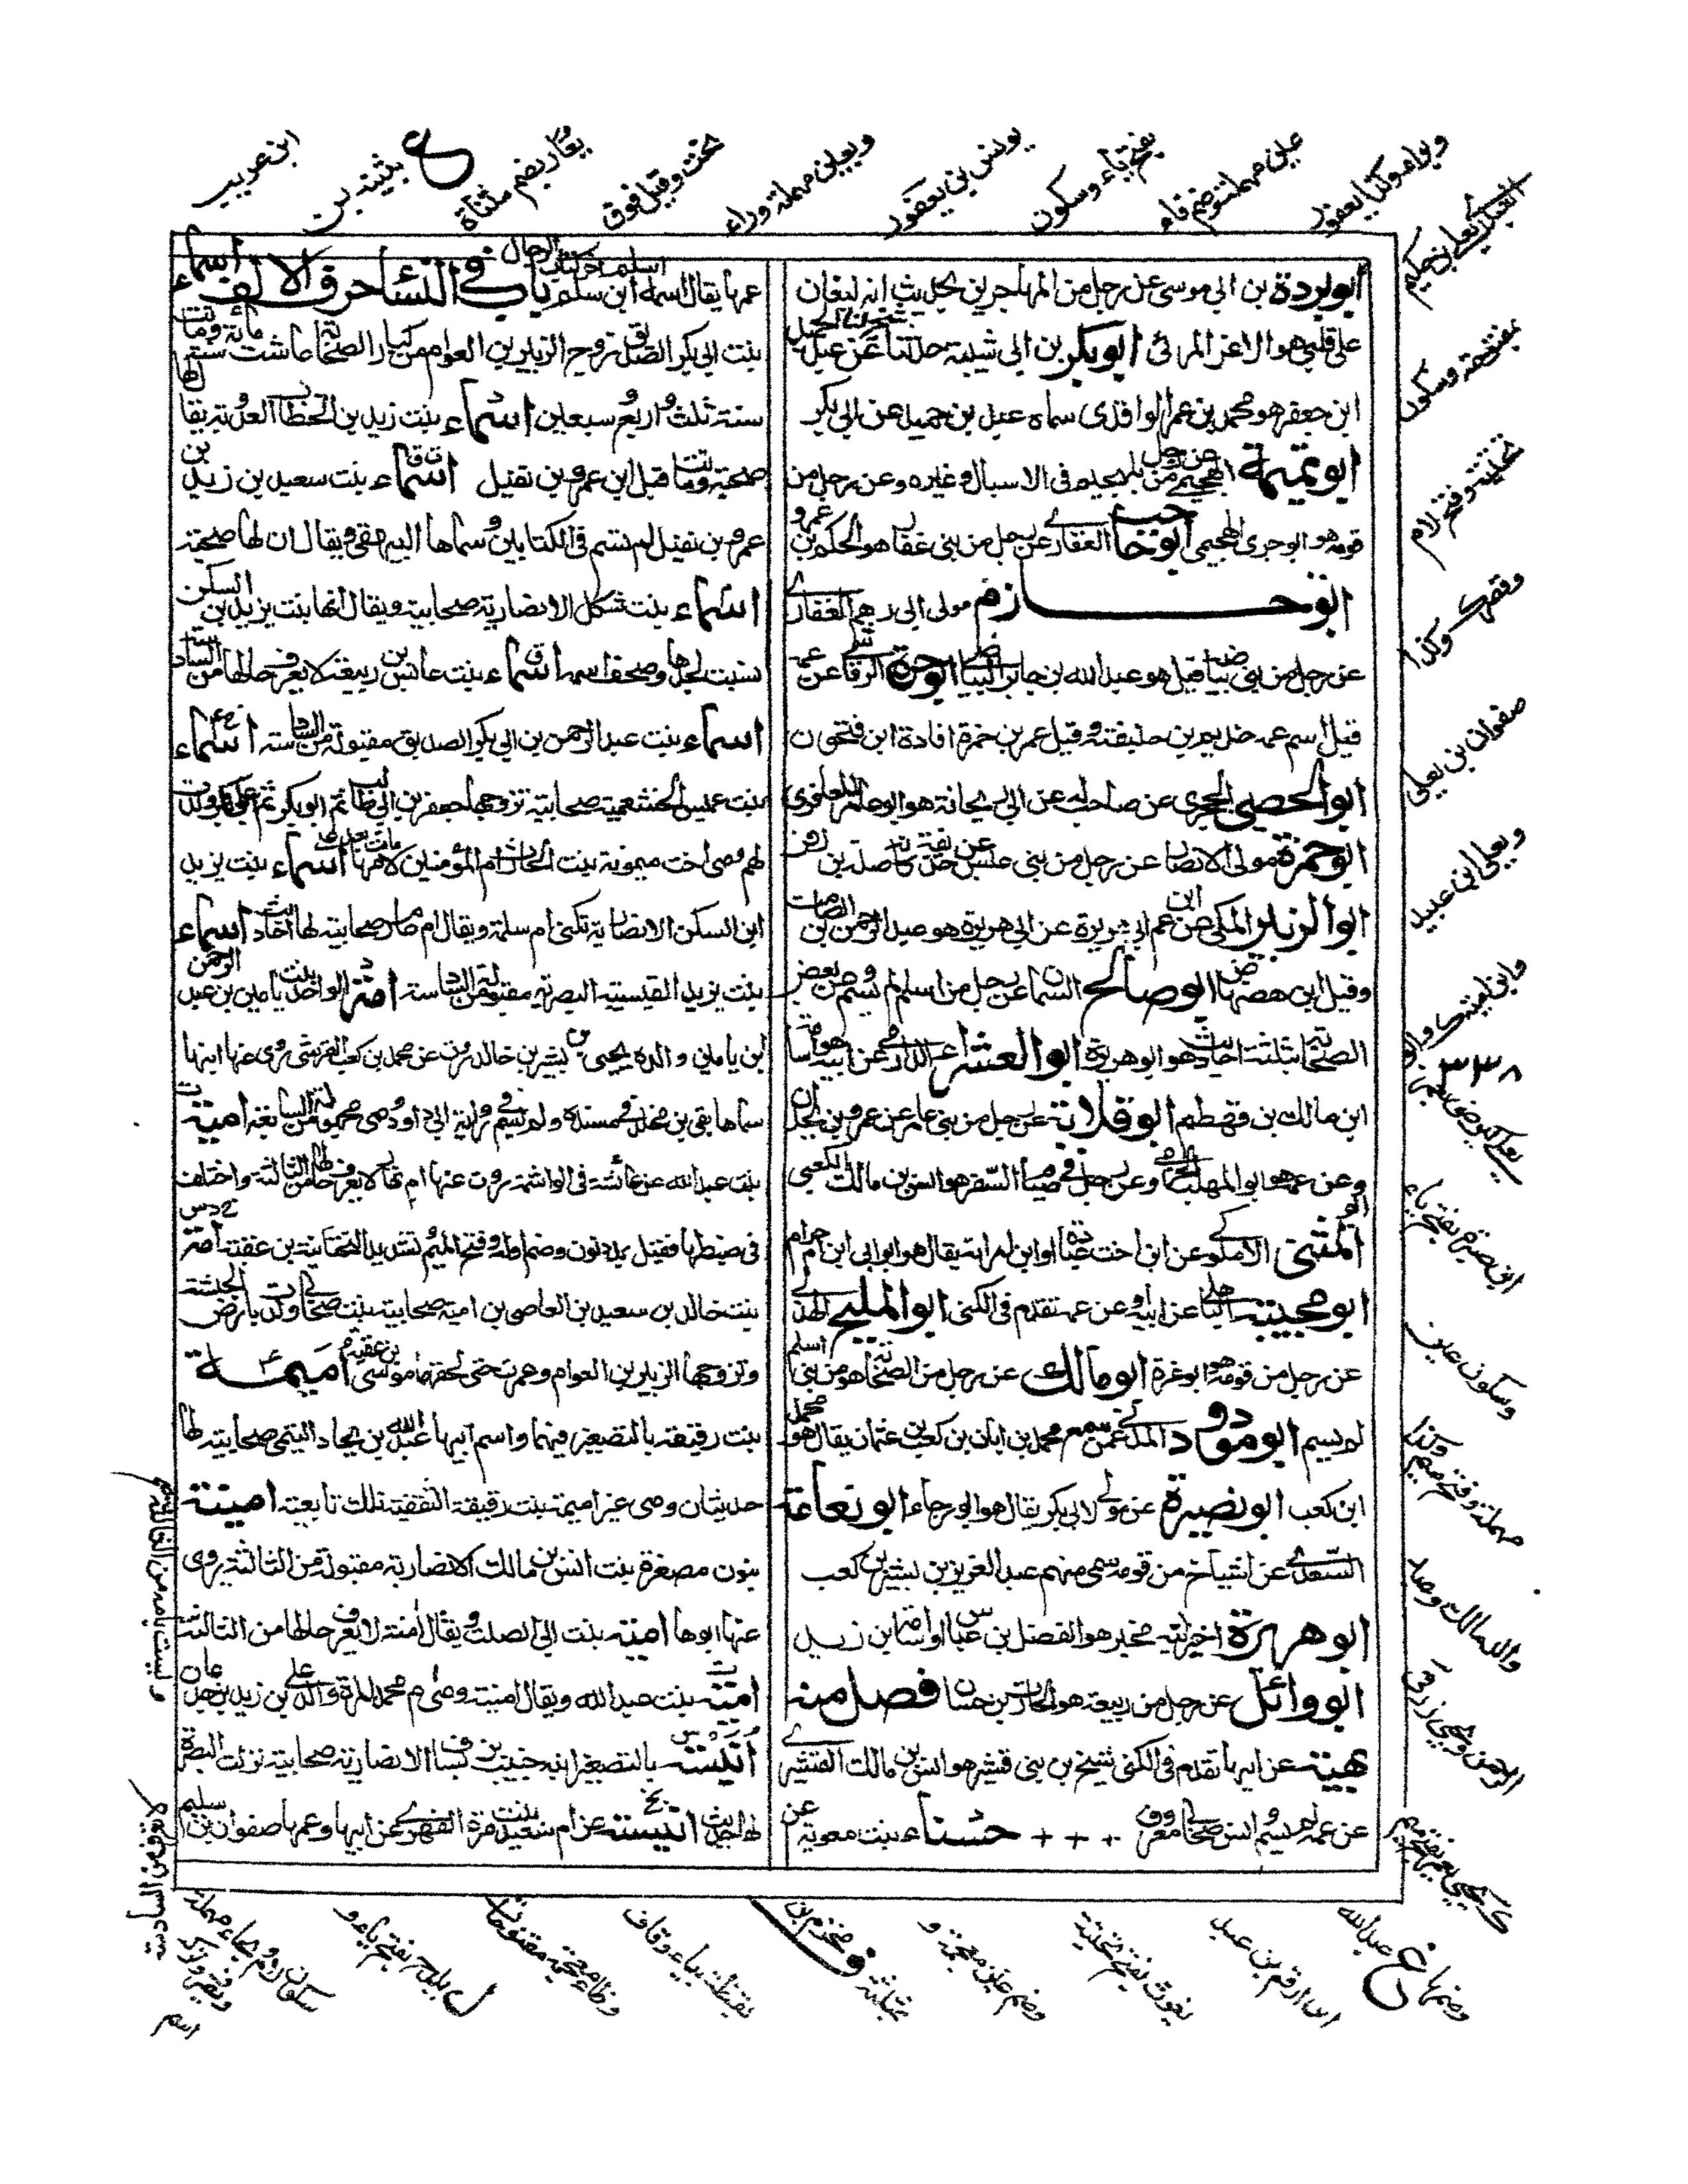 ابو بردة بن ابي موسى عن رجل من المهاجرين بحديث انه ليغان
على قلبي هو الاغر المزني ابو بكر بن ابي شيبة حدثنا شيخ لنا عن عبد الحميد
ابن جعفر هو محمد بن عمر الواقدى سماه عبد بن حميد عن ابي بكر
ابو تميمة الهجيمي عن رجل من بلهجيم في الاسبال وغيره وعن رجل من
قومه هو ابو جرى الهجيمي ابو حاجب الغفارى عن رجل من بنى غفار هو الحكم بن عمرو
ابو حازم مولى ابي رهم الغفارى
عن رجل من بنى بياضة قيل هو عبد الله بن جابر البياضى ابو حرة الرقاشى عن عمه
قيل اسم عمه حذيم بن حنيفة وقيل عمر بن حمزة افادة ابن فتحون
ابو الحصين الحجرى عن صاحب له عن ابي ريحانة هو ابو عامر المعافرى
ابو حمزة مولى الانصار عن رجل من بنى عبس عن حذيفة كانه صلة بن زفر
ابو الزبير المكى عن ابن عم ابي هريرة عن ابي هريرة هو عبد الرحمن بن الصامت
وقيل ابن هضهاض ابو صالح السمان عن رجل من اسلم لم يسم وعن بعض
الصحابة ثلثة احاديث هو ابو هريرة ابو العشراء الدارمى عن ابيه هو اسامة
ابن مالك بن قهطم ابو قلابة عن رجل من بنى عامر عن عمرو بن بجدان
وعن عمه هو ابو المهلب الجرمى وعن رجل في صيام السفر هو انس بن مالك الكعبى
ابو المثنى الاملوكى عن ابن اخت عبادة او ابن امراته يقال هو ابو ابي ابن ام حرام
ابو مجيبة الباهلى عن ابيه او عن عمه تقدم في الكنى ابو المليح الهذلى
عن رجل من قومه هو ابو عزة ابو مالك عن رجل من الصحابة هو من بنى اسلم
لم يسم ابو مودود المدنى عمن سمع محمد بن ابان بن كعب بن عثمان يقال هو محمد
ابن كعب ابو نصيرة عن مولى لابي بكر يقال هو ابو رجاء ابو نعامة
السعدى عن اشياخ من قومه سمى منهم عبد العزيز بن بشير بن كعب
ابو هريرة اخبرنيه مخبر هو الفضل بن عباس او اسامة بن زيد
ابو وائل عن رجل من ربيعة هو الحارث بن حسان فصل منه
بهيسة عن ابيها تقدم في الكنى شيخ بن بنى قشير هو انس بن مالك القشيرى
عن عمه لم يسم انس صحابى معروف + + + حسناء بنت معوية عن
عمها يقال اسمه اسلم ابن سليم اخر كتاب الرجال باب في النسا حرف الالف اسماء
بنت ابي بكر الصديق زوج الزبير بن العوام من كبار الصحابة عاشت مائة سنة وماتت
سنة ثلث او اربع وسبعين اسماء بنت زيد بن الخطاب العدوية يقال لها
صحبة وماتت قبل ابن عمر وبن نفيل اسماء بنت سعيد بن زيد بن
عمرو بن نفيل لم تسم في الكتابين وسماها البيهقى ويقال ان لها صحبة
اسماء بنت شكل الانصارية صحابية ويقال انها بنت يزيد بن السكن
نسبت لجدها وصحف اسمه اسماء بنت عابس بن ربيعة لا يعرف حالها من السادسة
اسماء بنت عبد الرحمن بن ابي بكر الصديق مقبولة من السادسة اسماء
بنت عميس الخثعمية صحابية تزوجها جعفر بن ابي طالب ثم ابو بكر ثم على وولدت
لهم وهى اخت ميمونة بنت الحارث ام المؤمنين لامها ماتت بعد على اسماء بنت يزيد
ابن السكن الانصارية تكنى ام سلمة ويقال ام عامر صحابية لها احاديث اسماء
بنت يزيد القيسية البصرية مقبولة من السادسة امة الواحد بنت يامين بن عبد الرحمن
ابن يامين والدة يحيى بن بشير بن خلاد روت عن محمد بن كعب القرشى روى عنها ابنها
سماها بقى بن مخلد في مسنده ولم تسم في رواية ابي داود وهى مجهولة من السابعة امية
بنت عبد الله عن عائشة في الواشمة روت عنها ام نهار لا يعرف حالها من الثالثة واختلف
في ضبطها فقيل بمد ونون وضم اوله وفتح الميم وتشديد التحتانية بن عقبة امة
بنت خالد بن سعيد بن العاصى بن امية صحابية بنت صحابى ولدت بارض الحبشة
وتزوجها الزبير بن العوام وعمرت حتى لحقها موسى بن عقبة اميمة
بنت رقيقة بالتصغير فيهما واسم ابيها عبد الله بن بجاد التيمى صحابية لها
حديثان وهى غير اميمة بنت رقيقة الثقفية تلك تابعية امينة
بنون مصغرة بنت انس بن مالك الانصارية مقبولة من الثالثة يروى
عنها ابوها امينة بنت ابي الصلت ويقال امنة لا يعرف حالها من الثالثة
امية بنت عبد الله ويقال امينة وهى ام محمد امراة والد على بن زيد بن جدعان
انيسة بالتصغير ابنة خبيب بن يساف الانصارية صحابية نزلت البصرة
لها حديث انيسة عن ام سعيد بنت مرة الفهرى عن ابيها وعمها صفوان بن سليم
ويواو وكذا يعفور
عين مهملة وضم فاء
بفتح ياء وسكون
يونس بن يعفور
وبعين مهملة وراء
تحت وقيل فوق
يعار بضم مثناة
بثينة بن
ابن عريب
بمفتوحة وسكون
تحتية وفتح لام
وكذا
صفوان بن يعلى
ويعلى ابن عبيد
٣٣٨
ابى بصرة بفتح ياء
وسكون عين
مهملة وفتح ميم وكذا
والد مالك وصار
وليست بامه من الثالثة
لا تعرف من السادسة
وضمها ع عبد الله
ابن ارقم بن عبد
يغوث بفتح تحتية
وضم غين معجمة و
بمثلثة ف مخرم بن
يقظة بياء وقاف
وظاء معجمة مفتوحات
ل يليل بفتح ياء و
اسم